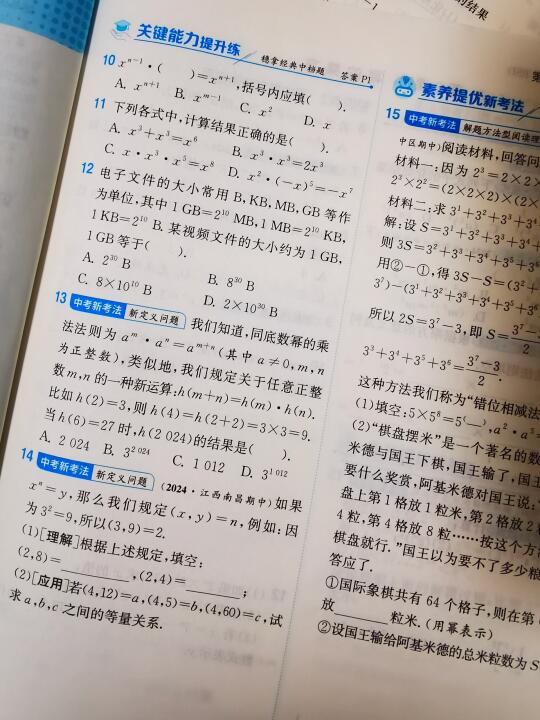 的结果
关键能力提升练
稳拿经典中档题 答案 P1
10 xⁿ⁻¹·( )=xⁿ⁺¹,括号内应填( ).
A. xⁿ⁺¹ B. xᵐ⁻¹ C. x² D. x
11 下列各式中,计算结果正确的是( ).
A. x³+x³=x⁶ B. x³·x³=2x³
C. x·x³·x⁵=x⁸ D. x²·(-x)⁵=-x⁷
12 电子文件的大小常用 B,KB,MB,GB 等作
为单位,其中 1 GB=2¹⁰ MB,1 MB=2¹⁰ KB,
1 KB=2¹⁰ B. 某视频文件的大小约为 1 GB,
1 GB 等于( ).
A. 2³⁰ B B. 8³⁰ B
C. 8×10¹⁰ B D. 2×10³⁰ B
13 中考新考法 新定义问题 我们知道,同底数幂的乘
法法则为 aᵐ·aⁿ=aᵐ⁺ⁿ(其中 a≠0,m,n
为正整数),类似地,我们规定关于任意正整
数 m,n 的一种新运算:h(m+n)=h(m)·h(n).
比如 h(2)=3,则 h(4)=h(2+2)=3×3=9.
当 h(6)=27 时,h(2 024)的结果是( ).
A. 2 024 B. 3²⁰²⁴ C. 1 012 D. 3¹⁰¹²
14 中考新考法 新定义问题 (2024·江西南昌期中)如果
xⁿ=y,那么我们规定(x,y)=n,例如:因
为 3²=9,所以(3,9)=2.
(1)[理解]根据上述规定,填空:
(2,8)=________,(2,4)=________;
(2)[应用]若(4,12)=a,(4,5)=b,(4,60)=c,试
求 a,b,c 之间的等量关系.
第
素养提优新考法
15 中考新考法 解题方法型阅读理
中区期中)阅读材料,回答问
材料一:因为 2³=2×2×
2³×2²=(2×2×2)×(2×
材料二:求 3¹+3²+3³+3⁴
解:设 S=3¹+3²+3³+3⁴
则 3S=3²+3³+3⁴+3⁵+3⁶
用②-①,得 3S-S=(3²+
3⁷)-(3¹+3²+3³+3⁴+3⁵+
所以 2S=3⁷-3,即 S=3⁷-/2
3³+3⁴+3⁵+3⁶=(3⁷-3)/2.
这种方法我们称为“错位相减法
(1)填空:5×5⁸=5⁽__⁾,a²·a⁵=
(2)“棋盘摆米”是一个著名的数
米德与国王下棋,国王输了,国王
要什么奖赏,阿基米德对国王说:
盘上第 1 格放 1 粒米,第 2 格放 2
4 粒,第 4 格放 8 粒……按这个方
棋盘就行.”国王以为要不了多少粮
答应了.
①国际象棋共有 64 个格子,则在第
放________粒米.(用幂表示)
②设国王输给阿基米德的总米粒数为 S